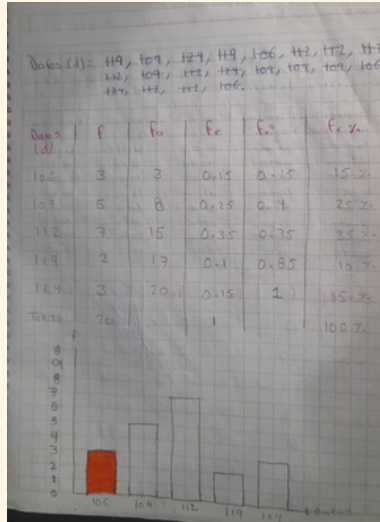 Datos (d): 119, 109, 124, 119, 106, 112, 112,
112, 109, 112, 124, 109, 109, 109, 106
124, 112, 112, 106.
Datos (d) f fa fr fra fr %
106 3 3 0.15 0.15 15 %
109 5 8 0.25 0.4 25 %
112 7 15 0.35 0.75 35 %
119 2 17 0.1 0.85 10 %
124 3 20 0.15 1 15 %
Total 20 1 100 %
f
9
8
7
6
5
4
3
2
1
0
106 109 112 119 124 Datos